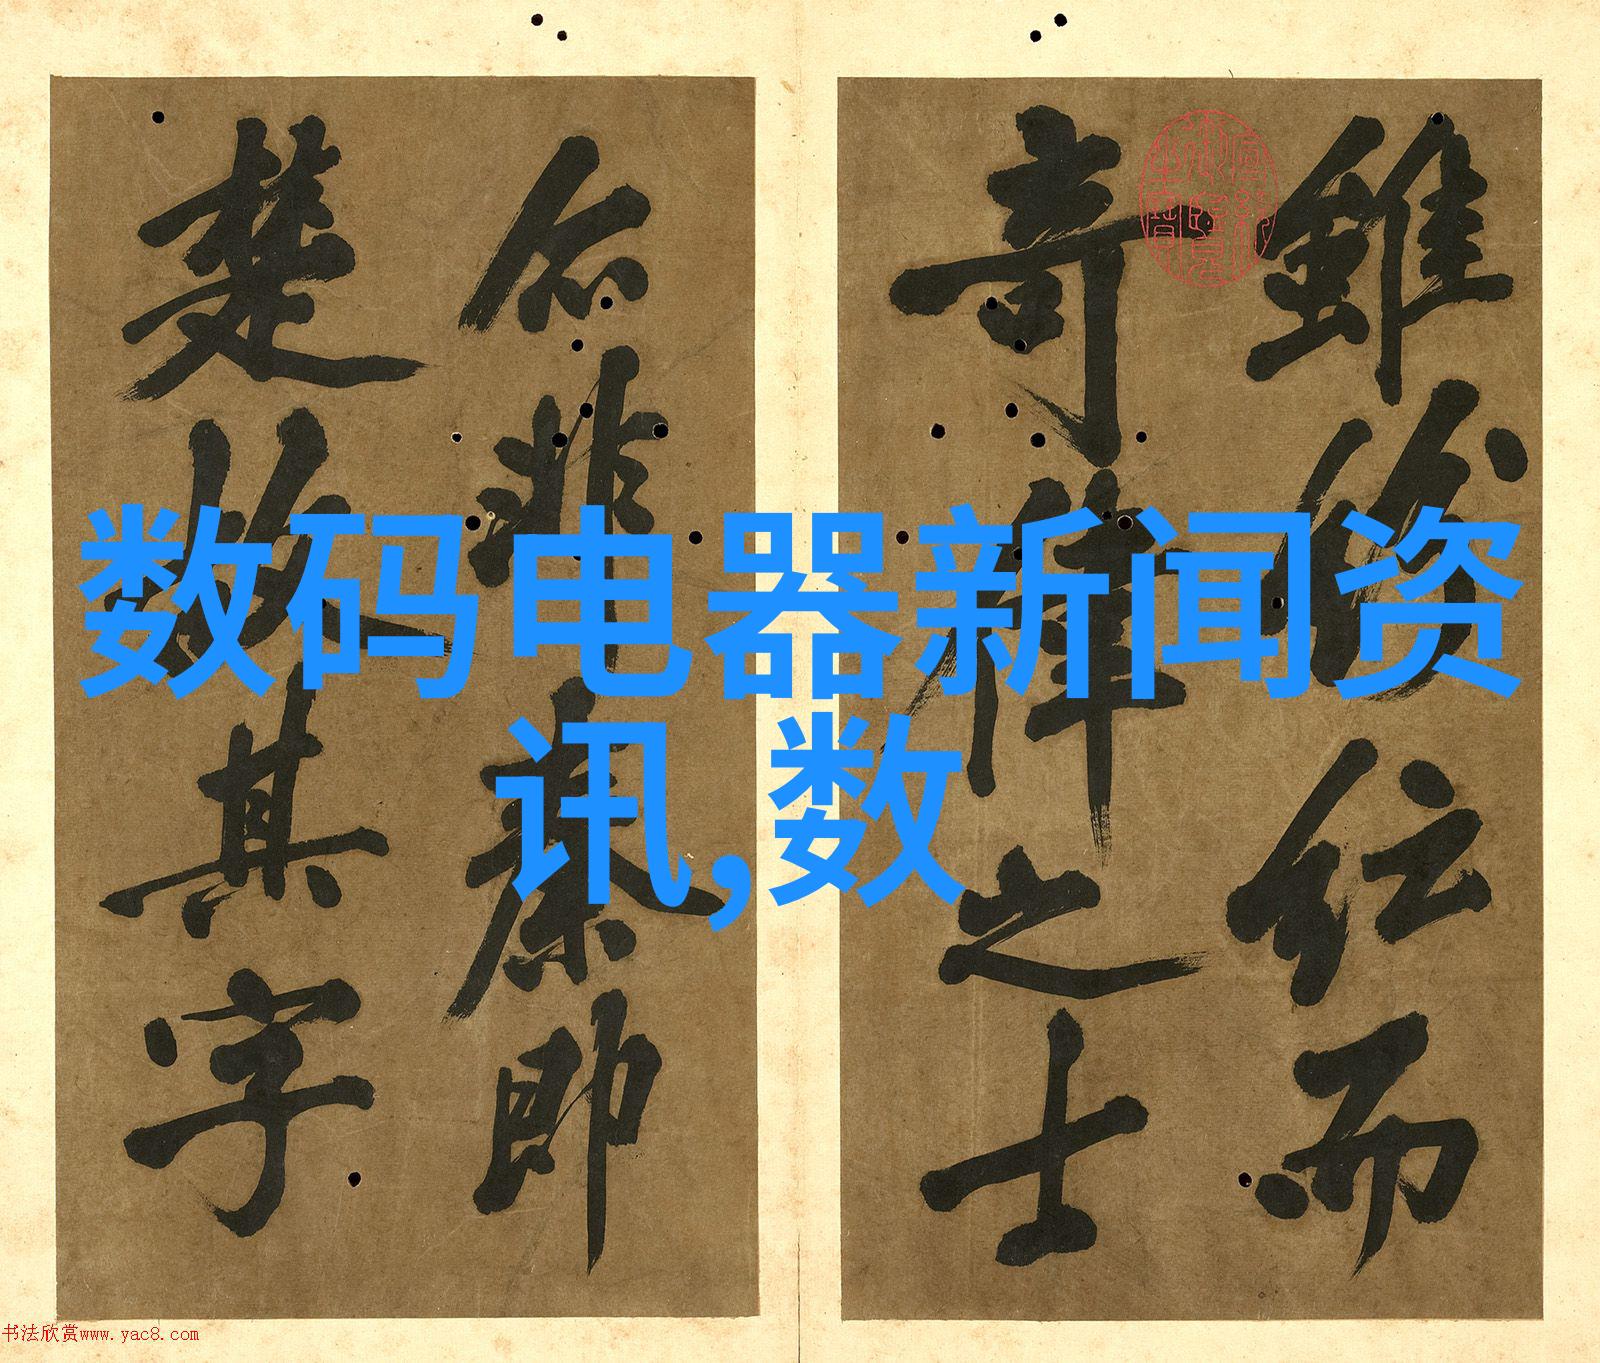 数码电器新闻资
讯,数
雖仕而
奇偉之士
非秦即
楚故其字
书法欣赏www.yac8.com